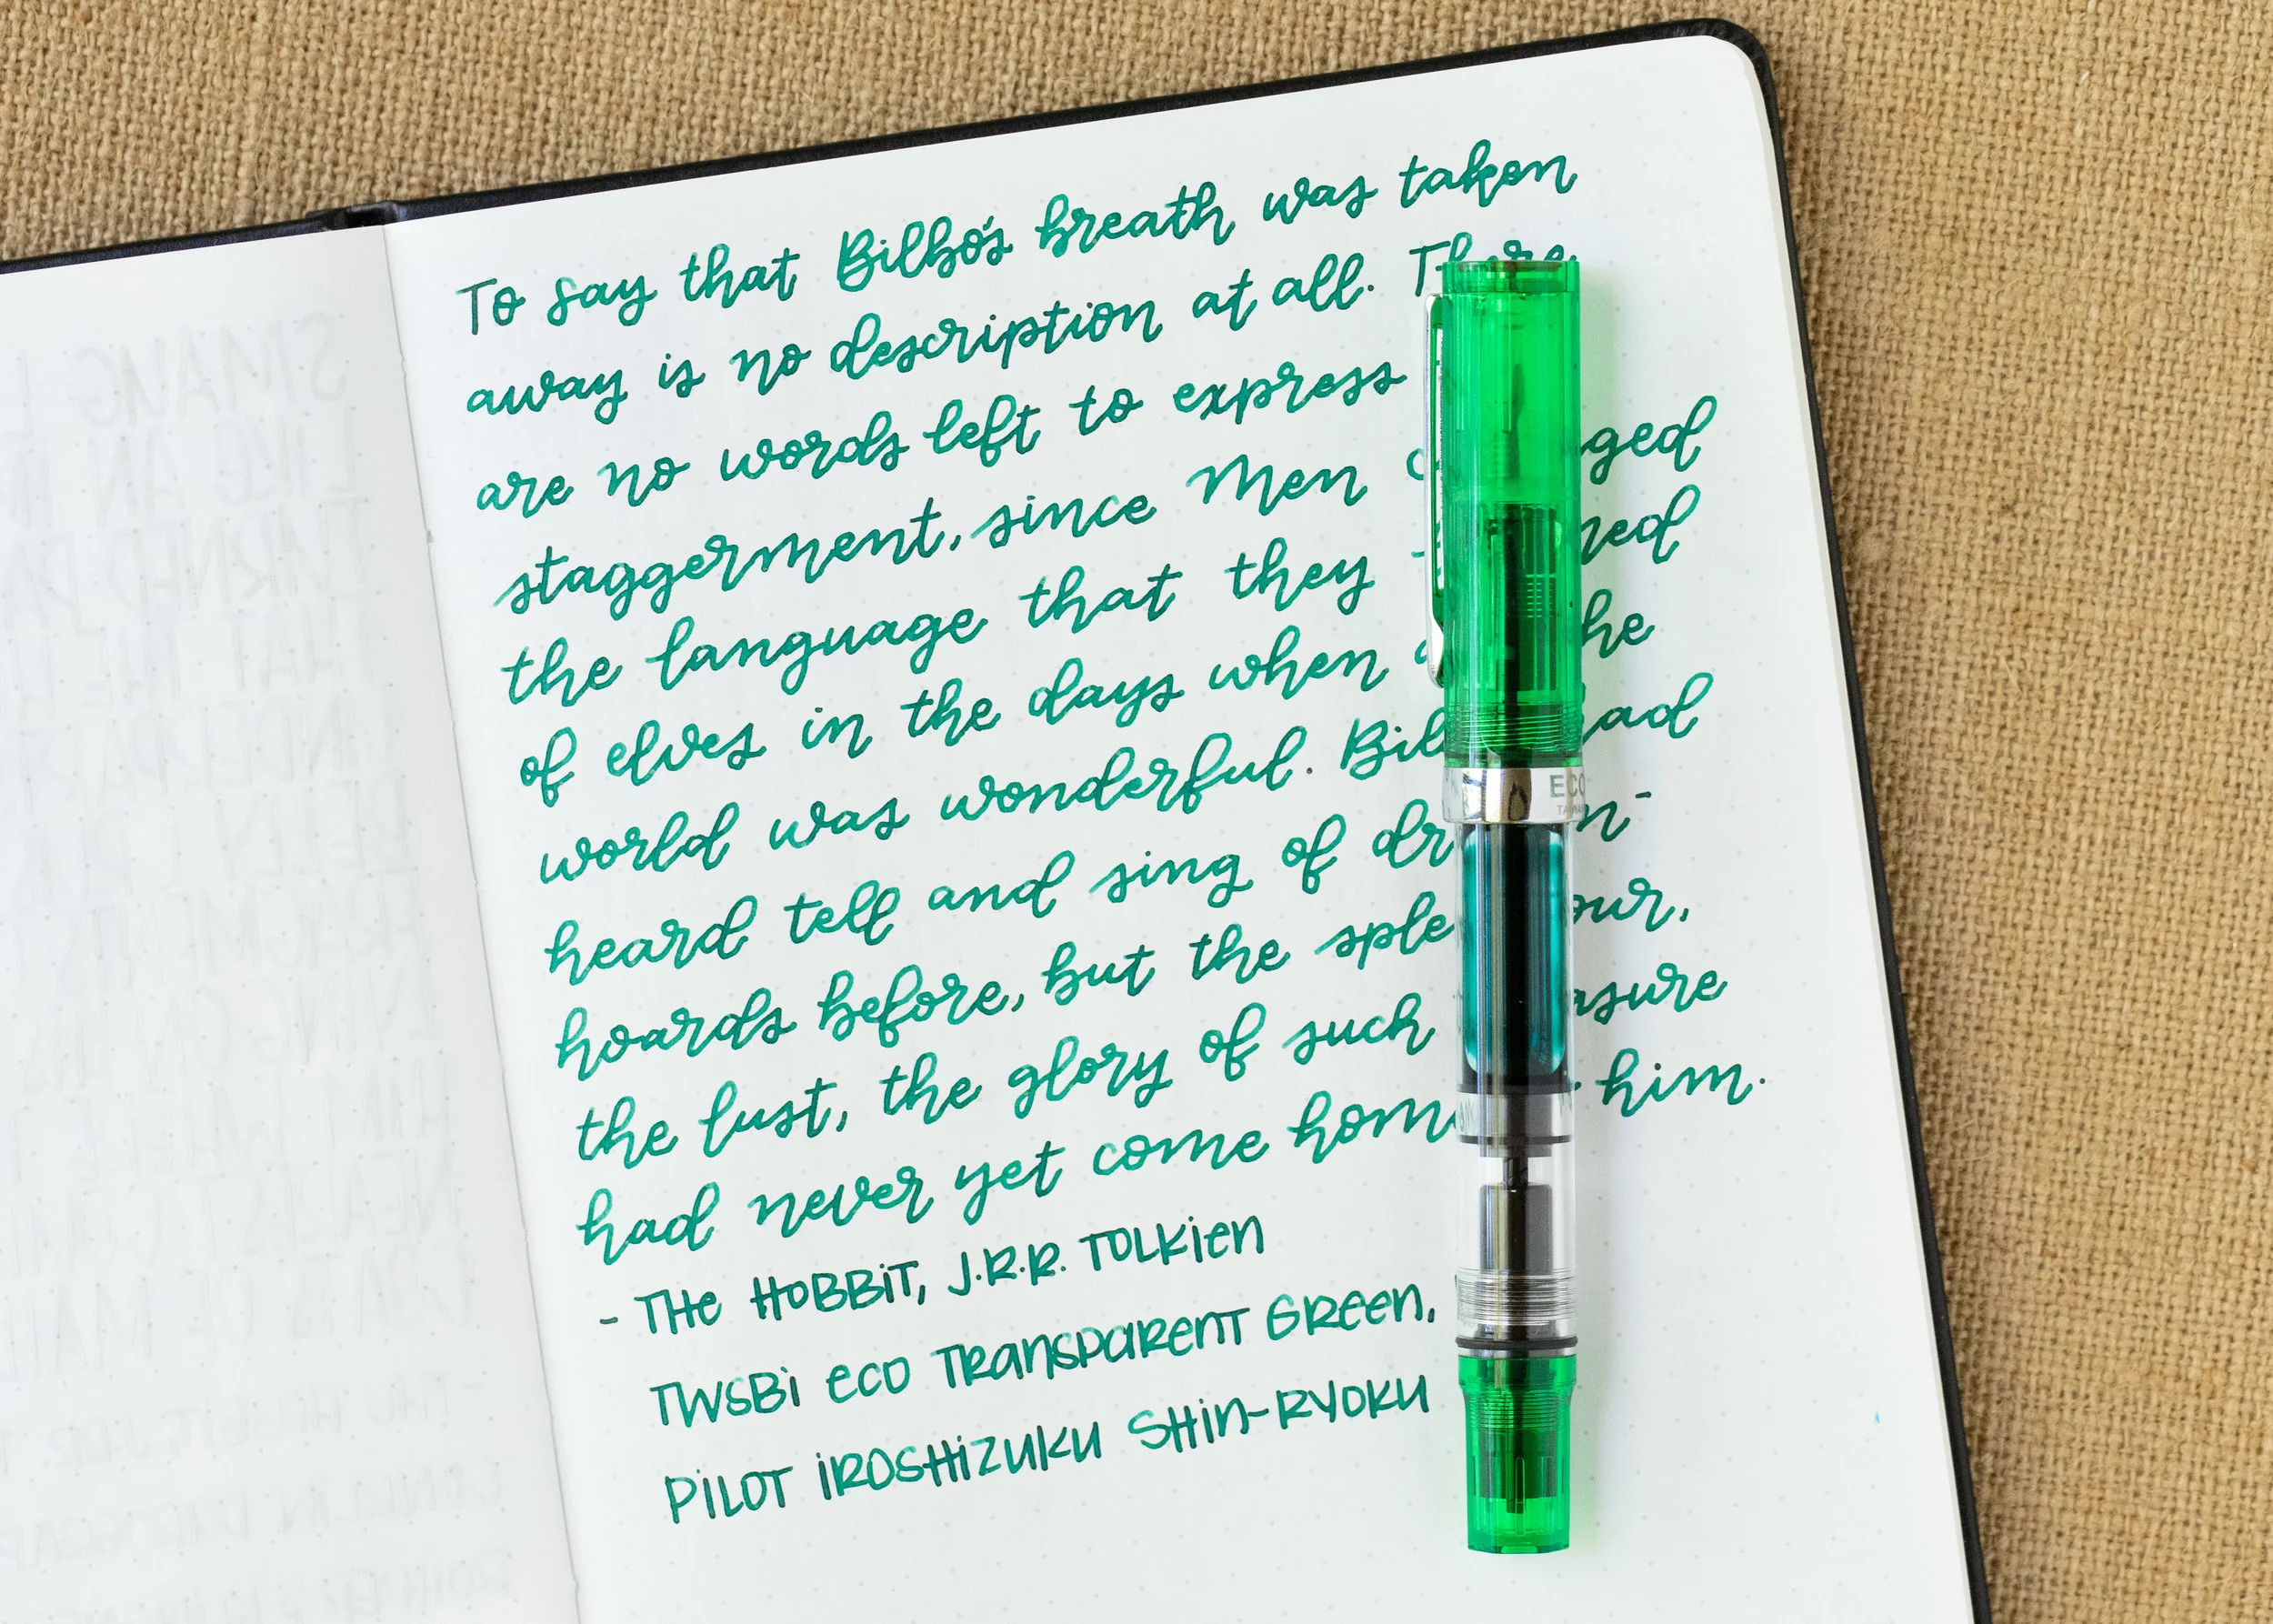 To say that Bilbo's breath was taken
away is no description at all. There
are no words left to express
staggerment, since Men
the language that they
of elves in the days when the
world was wonderful. had
heard tell and sing of
hoards before, but the
the lust, the glory of such
had never yet come him.
- THE HOBBIT, J.R.R. TOLKIEN
TWSBI ECO TRANSPARENT GREEN,
PILOT IROSHIZUKU SHIN-RYOKU
ECO